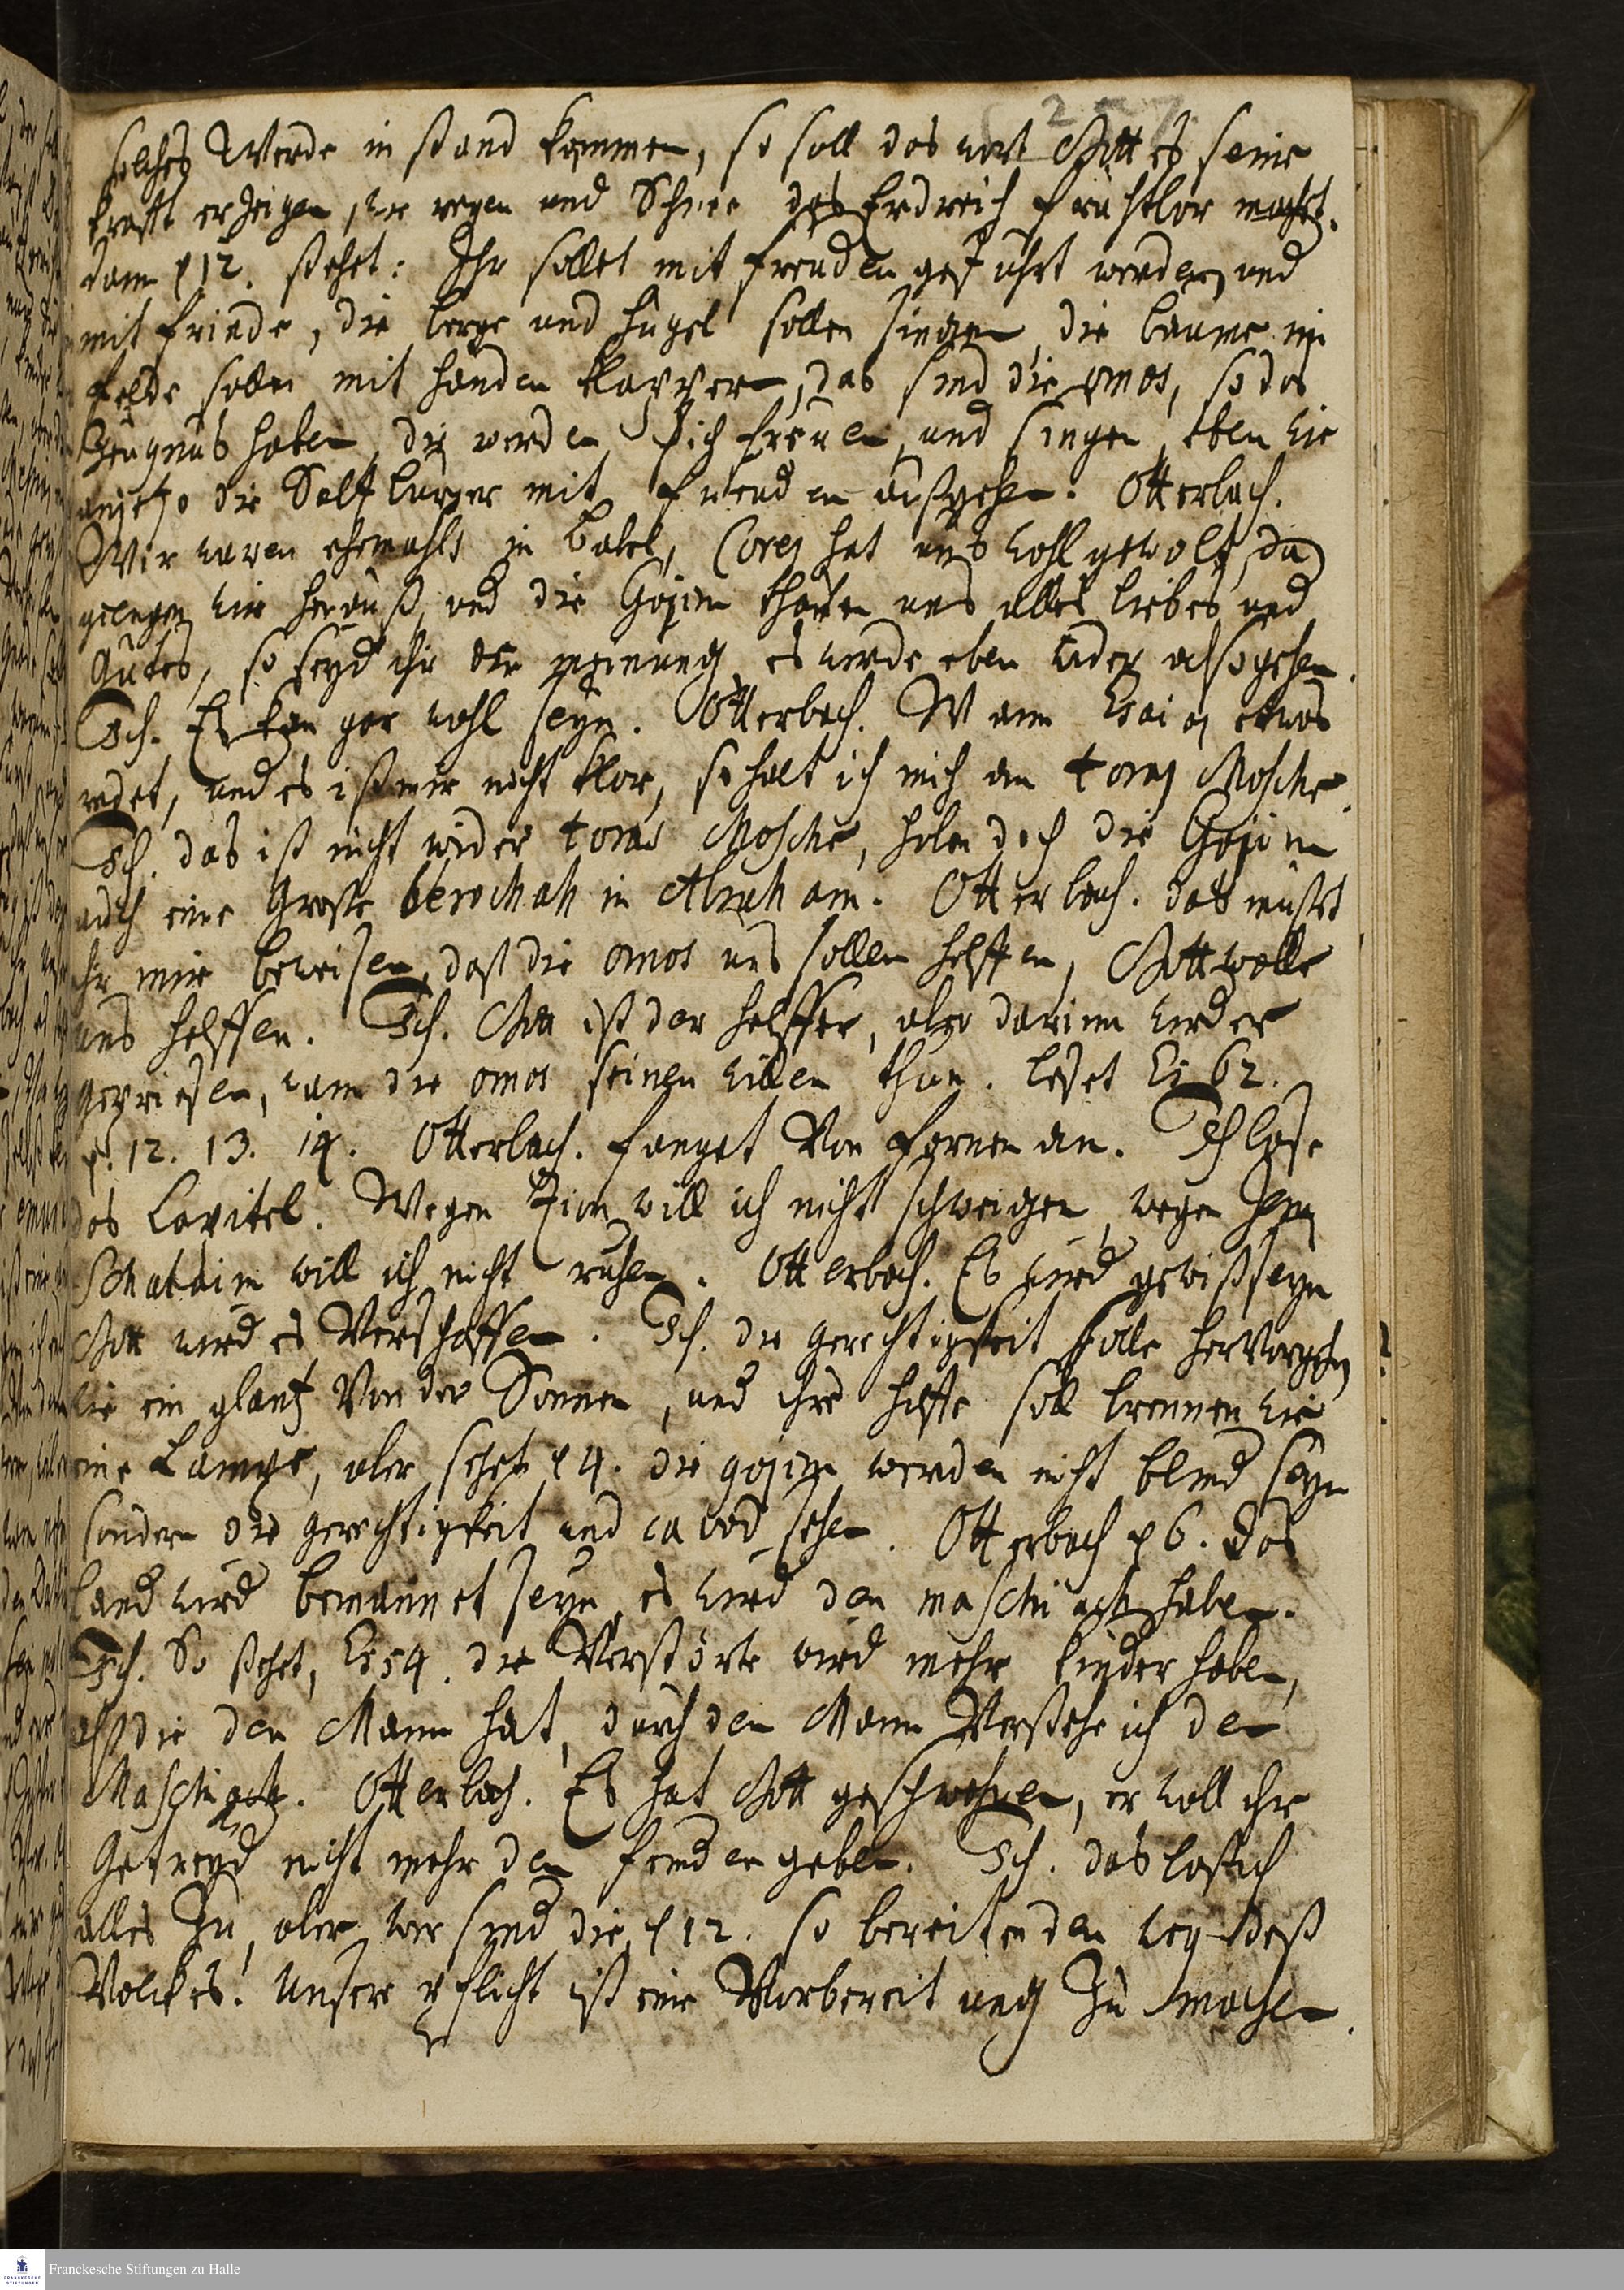 257.
solches Werde in stand kommen, so soll das wort Gottes seine
krafft erzeigen, wie regen und Schnee das Erdreich fruchtbar macht.
dann ℣ 12. stehet: Ihr sollet mit freuden geführt werden, und
mit friede, die berge und hügel sollen singen, die bäume im
felde sollen mit händen klappen, das sind die omos, so das
Zeugnus haben, die werden sich freuen, und singen, eben wie
anjetzo die Saltzburger mit freuden außgehen. Otterbach.
Wir waren ehemahls in Babel, Cores hat uns wohl gewolt, da
giengen wir herauß, und die Gojim thaten uns alles liebes und
Gutes, so seyd ihr der meinung, es werde eben wider also gehen.
Ich. Es kan gar wohl seyn. Otterbach. Wann Esaias etwas
redet, und es ist mir nicht klar, so halt ich mich an toras Mosche.
Ich. das ist nicht wider toras Mosche, haben doch die Gojim
auch eine Große berochah in Abraham. Otterbach. das müßt
ihr mir beweisen, daß die omos uns sollen helffen, Gott wolle
uns helffen. Ich. Gott ist der helffer, aber darinn wird er
gepriesen, wann die omos seinen willen thun. leset Es 62.
℣. 12. 13. 14. Otterbach. fanget Von fornen an. Ich lase
das Capitel. Wegen Zion will ich nicht schweigen, wegen Jeru
schalaim will ich nicht ruhen. Otterbach. Es wird gewiß seyn
Gott wird es Verschaffen. Ich. die gerechtigkeit solle hervorgehen
wie ein glantz Von der Sonnen, und ihre hilffe soll brennen wie
eine Lampe, aber sehet ℣ 4. die gojim werden nicht blind seyn
sondern die gerechtigkeit und cavod sehen. Otterbach ℣ 6. das
Land wird bemannet seyn, es wird den maschiach haben.
Ich. So stehet, Es 54. die Verstörte wird mehr kinder haben,
alß die den Mann hat, durch den Mann Verstehe ich den
Maschiach. Otterbach. Es hat Gott geschwohren, er woll ihr
Getreyd nicht mehr den feinden geben. Ich. das laß ich
alles Zu, aber wer sind die, ℣ 12. so bereiten den weg deß
Volckes. Unsere pflicht ist eine Vorbereitung Zu machen.
Franckesche Stiftungen zu Halle